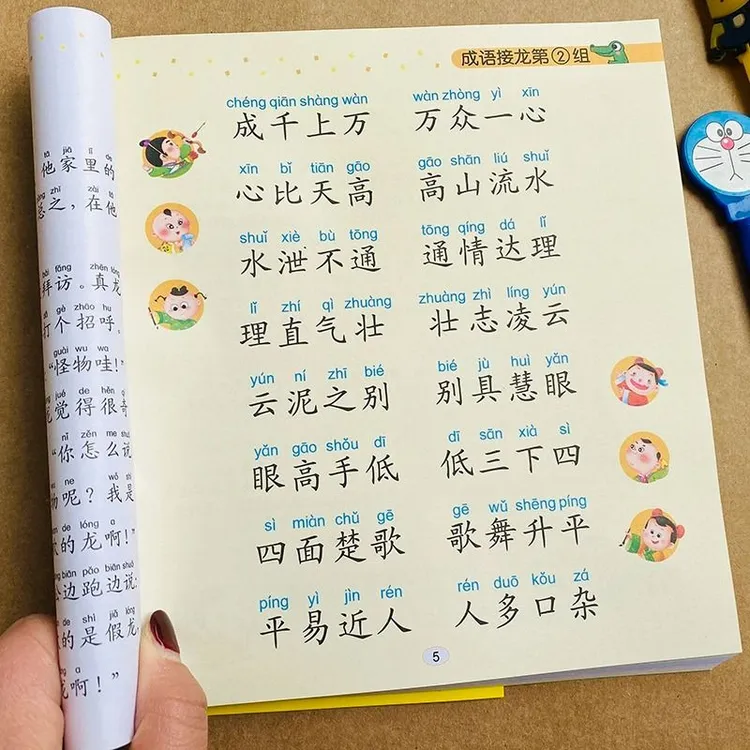 tā jiā lǐ de
他家里的
zhī zài tā
总之，在他
bài fǎng zhēn lóng
拜访。真龙
gè zhāo hu
打个招呼，
guài wu wa
“怪物哇！”
jué de hěn
觉得很奇
nǐ zěn me shuō
“你怎么说
ne wǒ
物呢？我是
de lóng a
的龙啊！”
biān pǎo biān shuō
边跑边说：
de shì jiǎ lóng
的是假龙
a
龙啊！”
成语接龙第②组
chéng qiān shàng wàn wàn zhòng yì xīn
成千上万 万众一心
xīn bǐ tiān gāo gāo shān liú shuǐ
心比天高 高山流水
shuǐ xiè bù tōng tōng qíng dá lǐ
水泄不通 通情达理
lǐ zhí qì zhuàng zhuàng zhì líng yún
理直气壮 壮志凌云
yún ní zhī bié bié jù huì yǎn
云泥之别 别具慧眼
yǎn gāo shǒu dī dī sān xià sì
眼高手低 低三下四
sì miàn chǔ gē gē wǔ shēng píng
四面楚歌 歌舞升平
píng yì jìn rén rén duō kǒu zá
平易近人 人多口杂
5